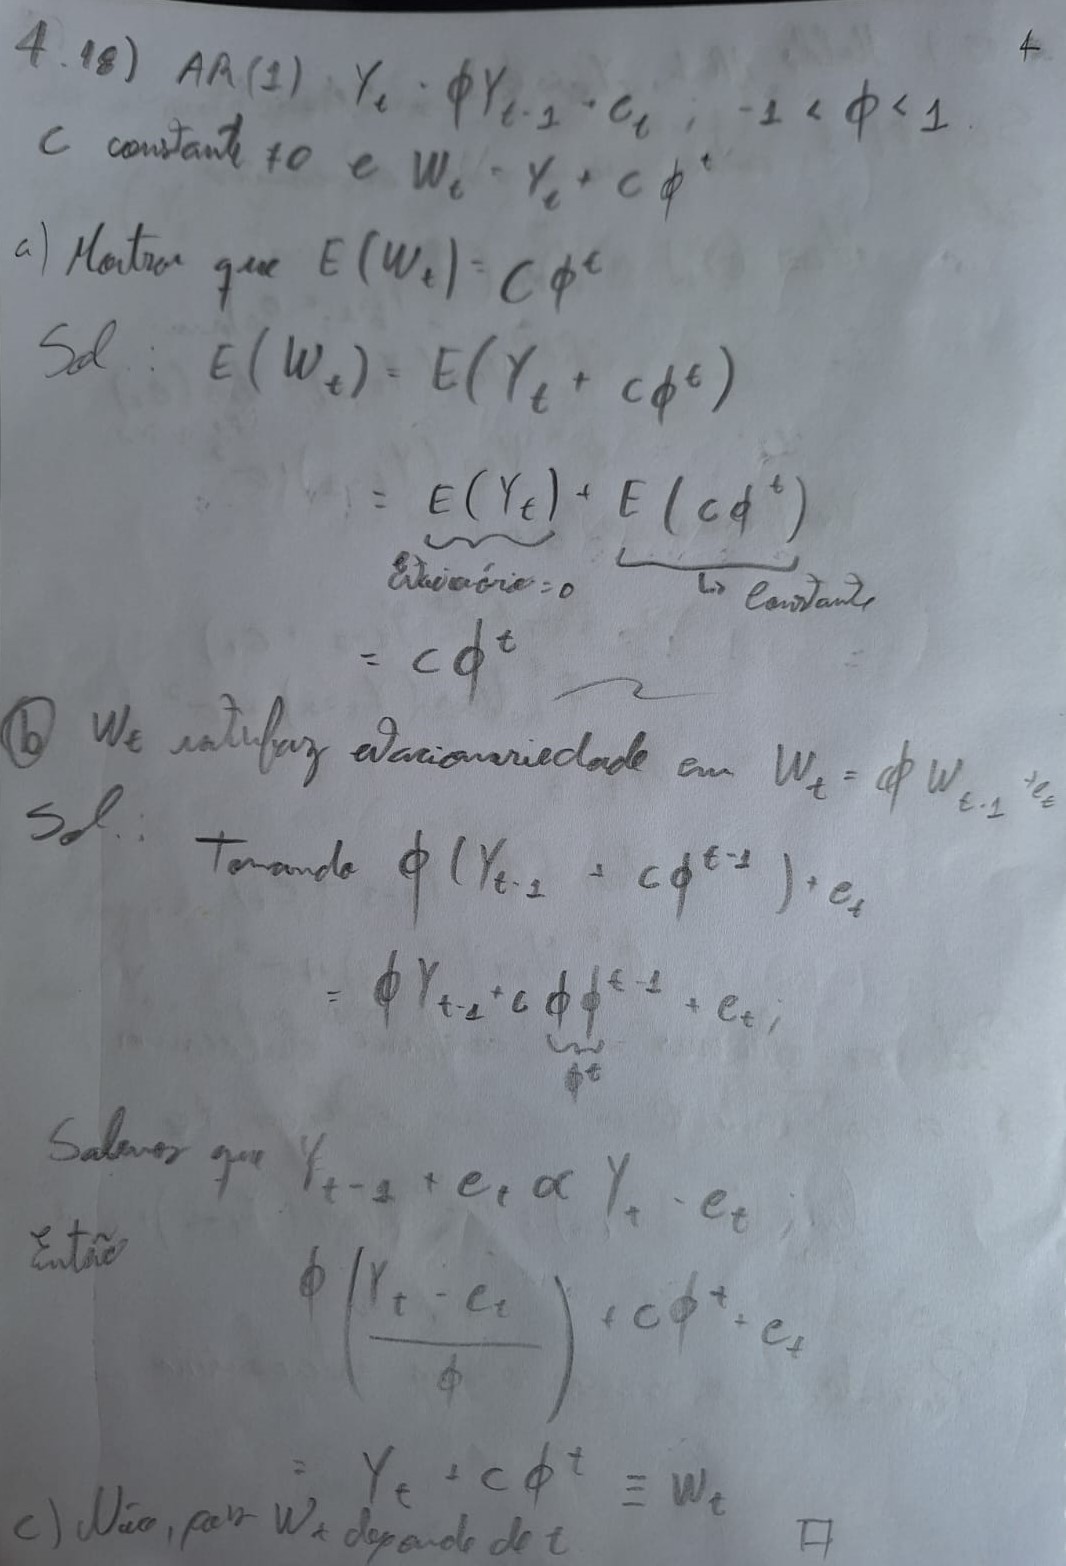 4
4.18) AR(1) Y_t = φY_{t-1} + e_t ; -1 < φ < 1.
C constante ≠0 e W_t = Y_t + cφ^t
a) Mostrar que E(W_t) = Cφ^t
Sol: E(W_t) = E(Y_t + cφ^t)
= E(Y_t) + E(cφ^t)
Estacionário = 0 ↳ Constante
= cφ^t
b) W_t satisfaz estacionariedade em W_t = φW_{t-1} + e_t
Sol.:
Tomando φ(Y_{t-1} + cφ^{t-1}) + e_t
= φY_{t-1} + cφφ^{t-1} + e_t;
φ^t
Sabemos que Y_{t-1} + e_t α Y_t - e_t;
Então
φ((Y_t - e_t)/φ) + cφ^t + e_t
= Y_t + cφ^t ≡ W_t
c) Não, pois W_t depende de t □